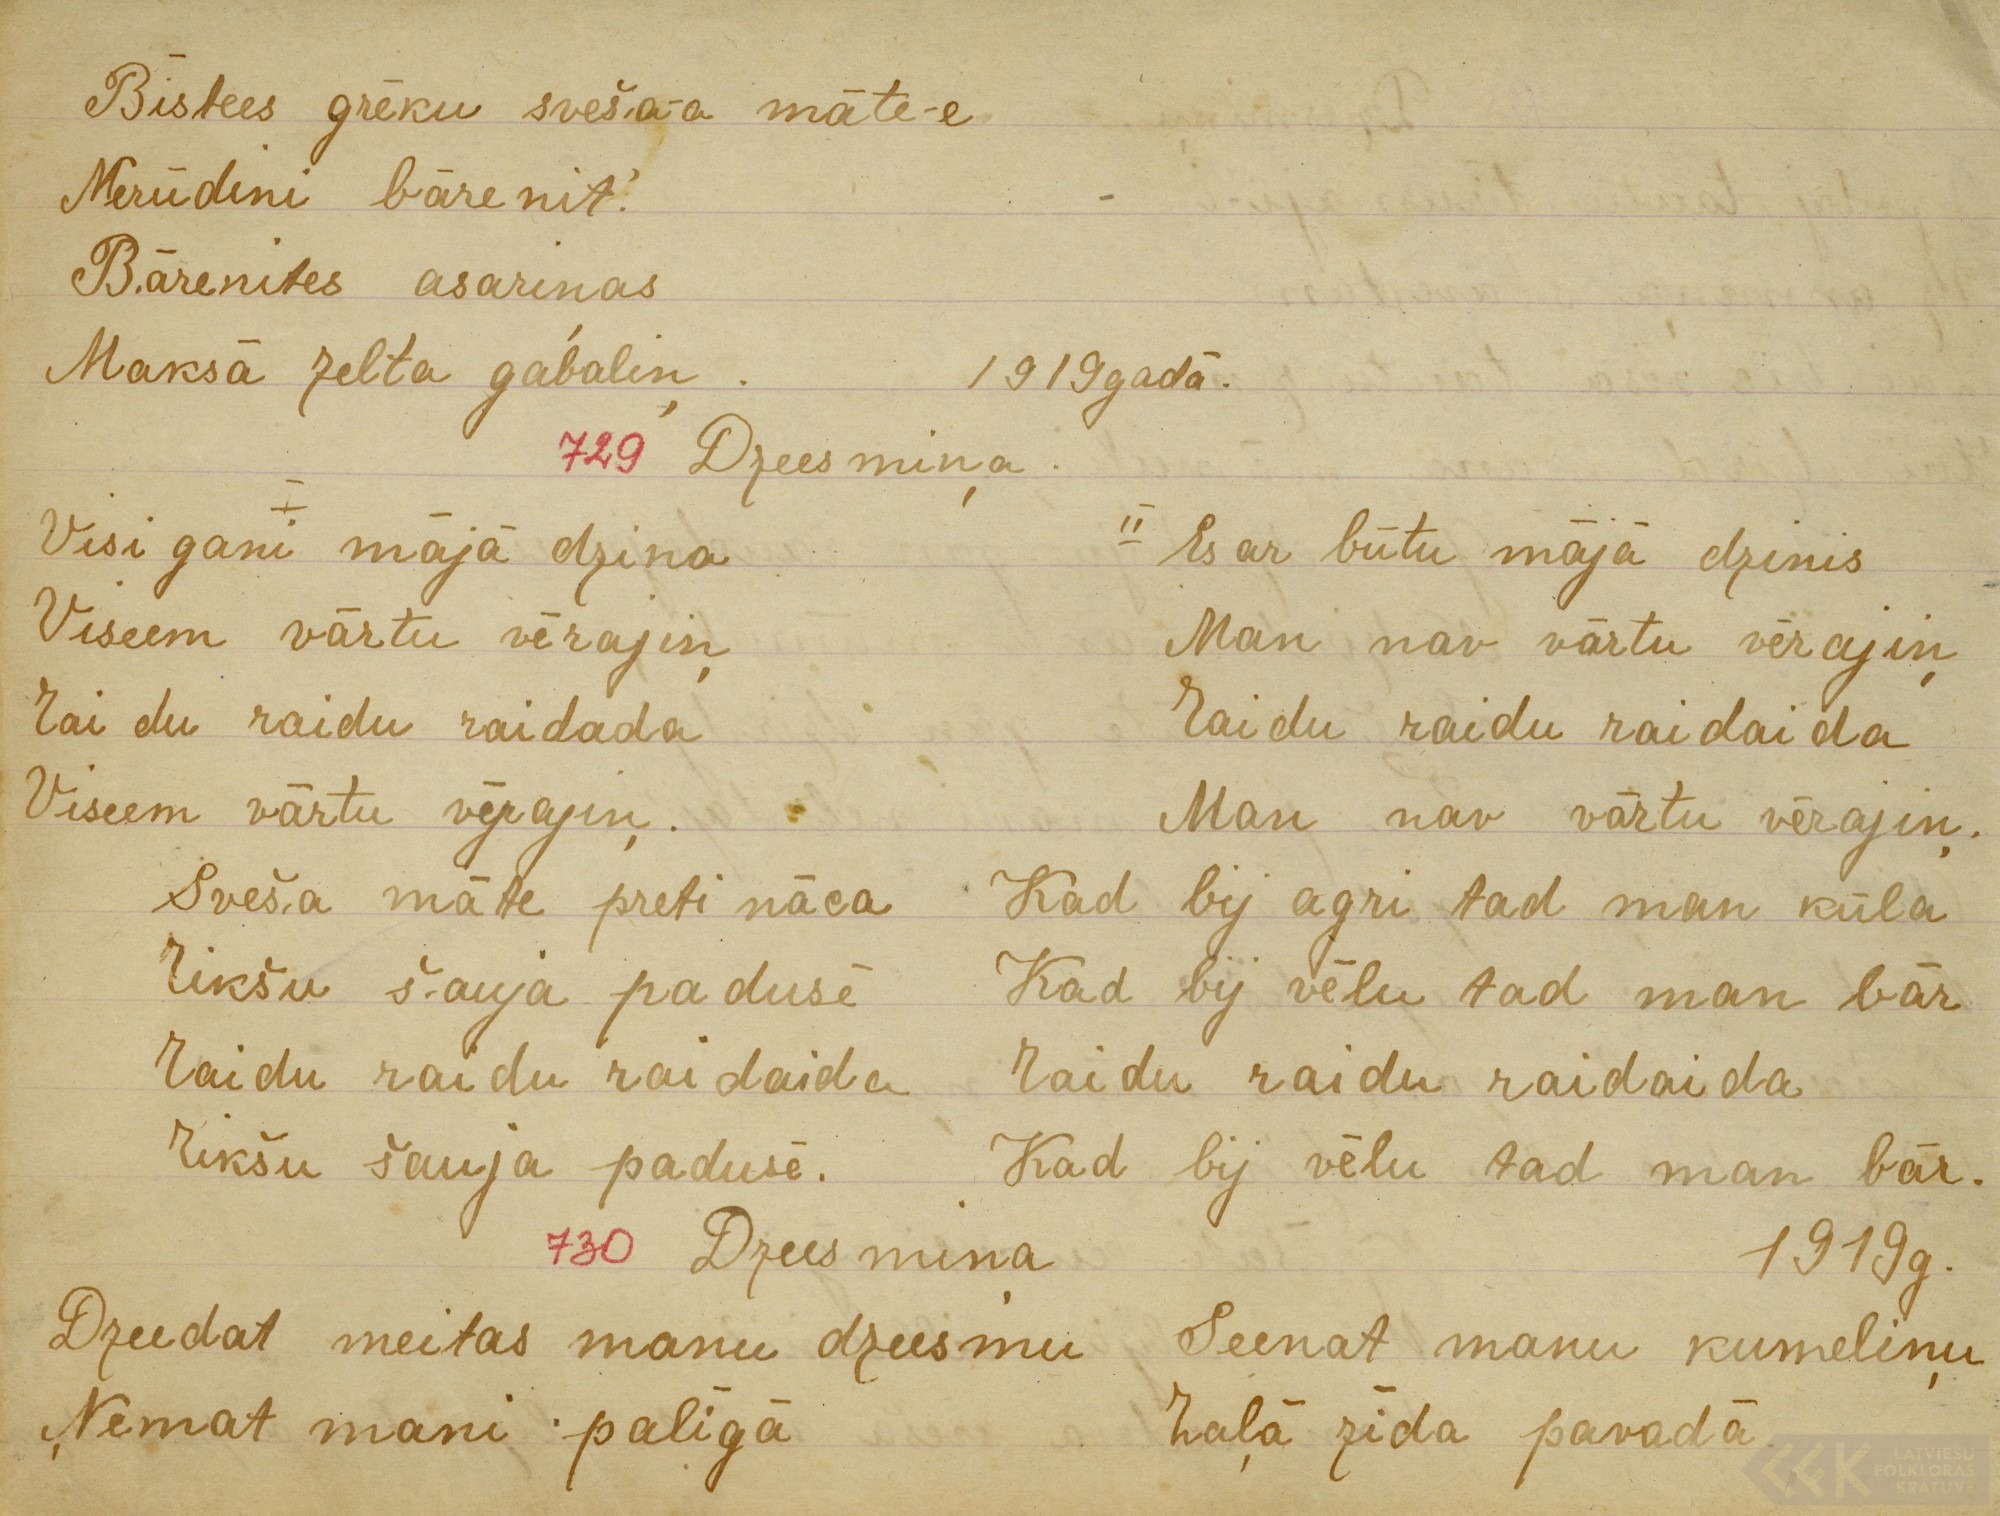 Bīstees grēku sveša-a māte-e
Nerūdini bārenit'.
Bārenites asariņas
Maksā zelta gabaliņ. 1919gadā.
729 Dzeesmiņa.
I
Visi gani mājā dzina
Viseem vārtu vērajiņ
Raidu raidu raidada
Viseem vārtu vērajiņ.
Sveša māte preti nāca
Rikšu šauja padusē
Raidu raidu raidaida
Rikšu šauja padusē.
II Es ar būtu mājā dzinis
Man nav vārtu vērajiņ
Raidu raidu raidaida
Man nav vārtu vērajiņ.
Kad bij agri tad man kūla
Kad bij vēlu tad man bār
Raidu raidu raidaida
Kad bij vēlu tad man bār.
1919g.
730 Dzeesmiņa
Dzeedat meitas manu dzeesmu
Ņemat mani palīgā
Seenat manu kumeliņu
Zaļā zīda pavadā
LATVIEŠU
FOLKLORAS
KRĀTUVE